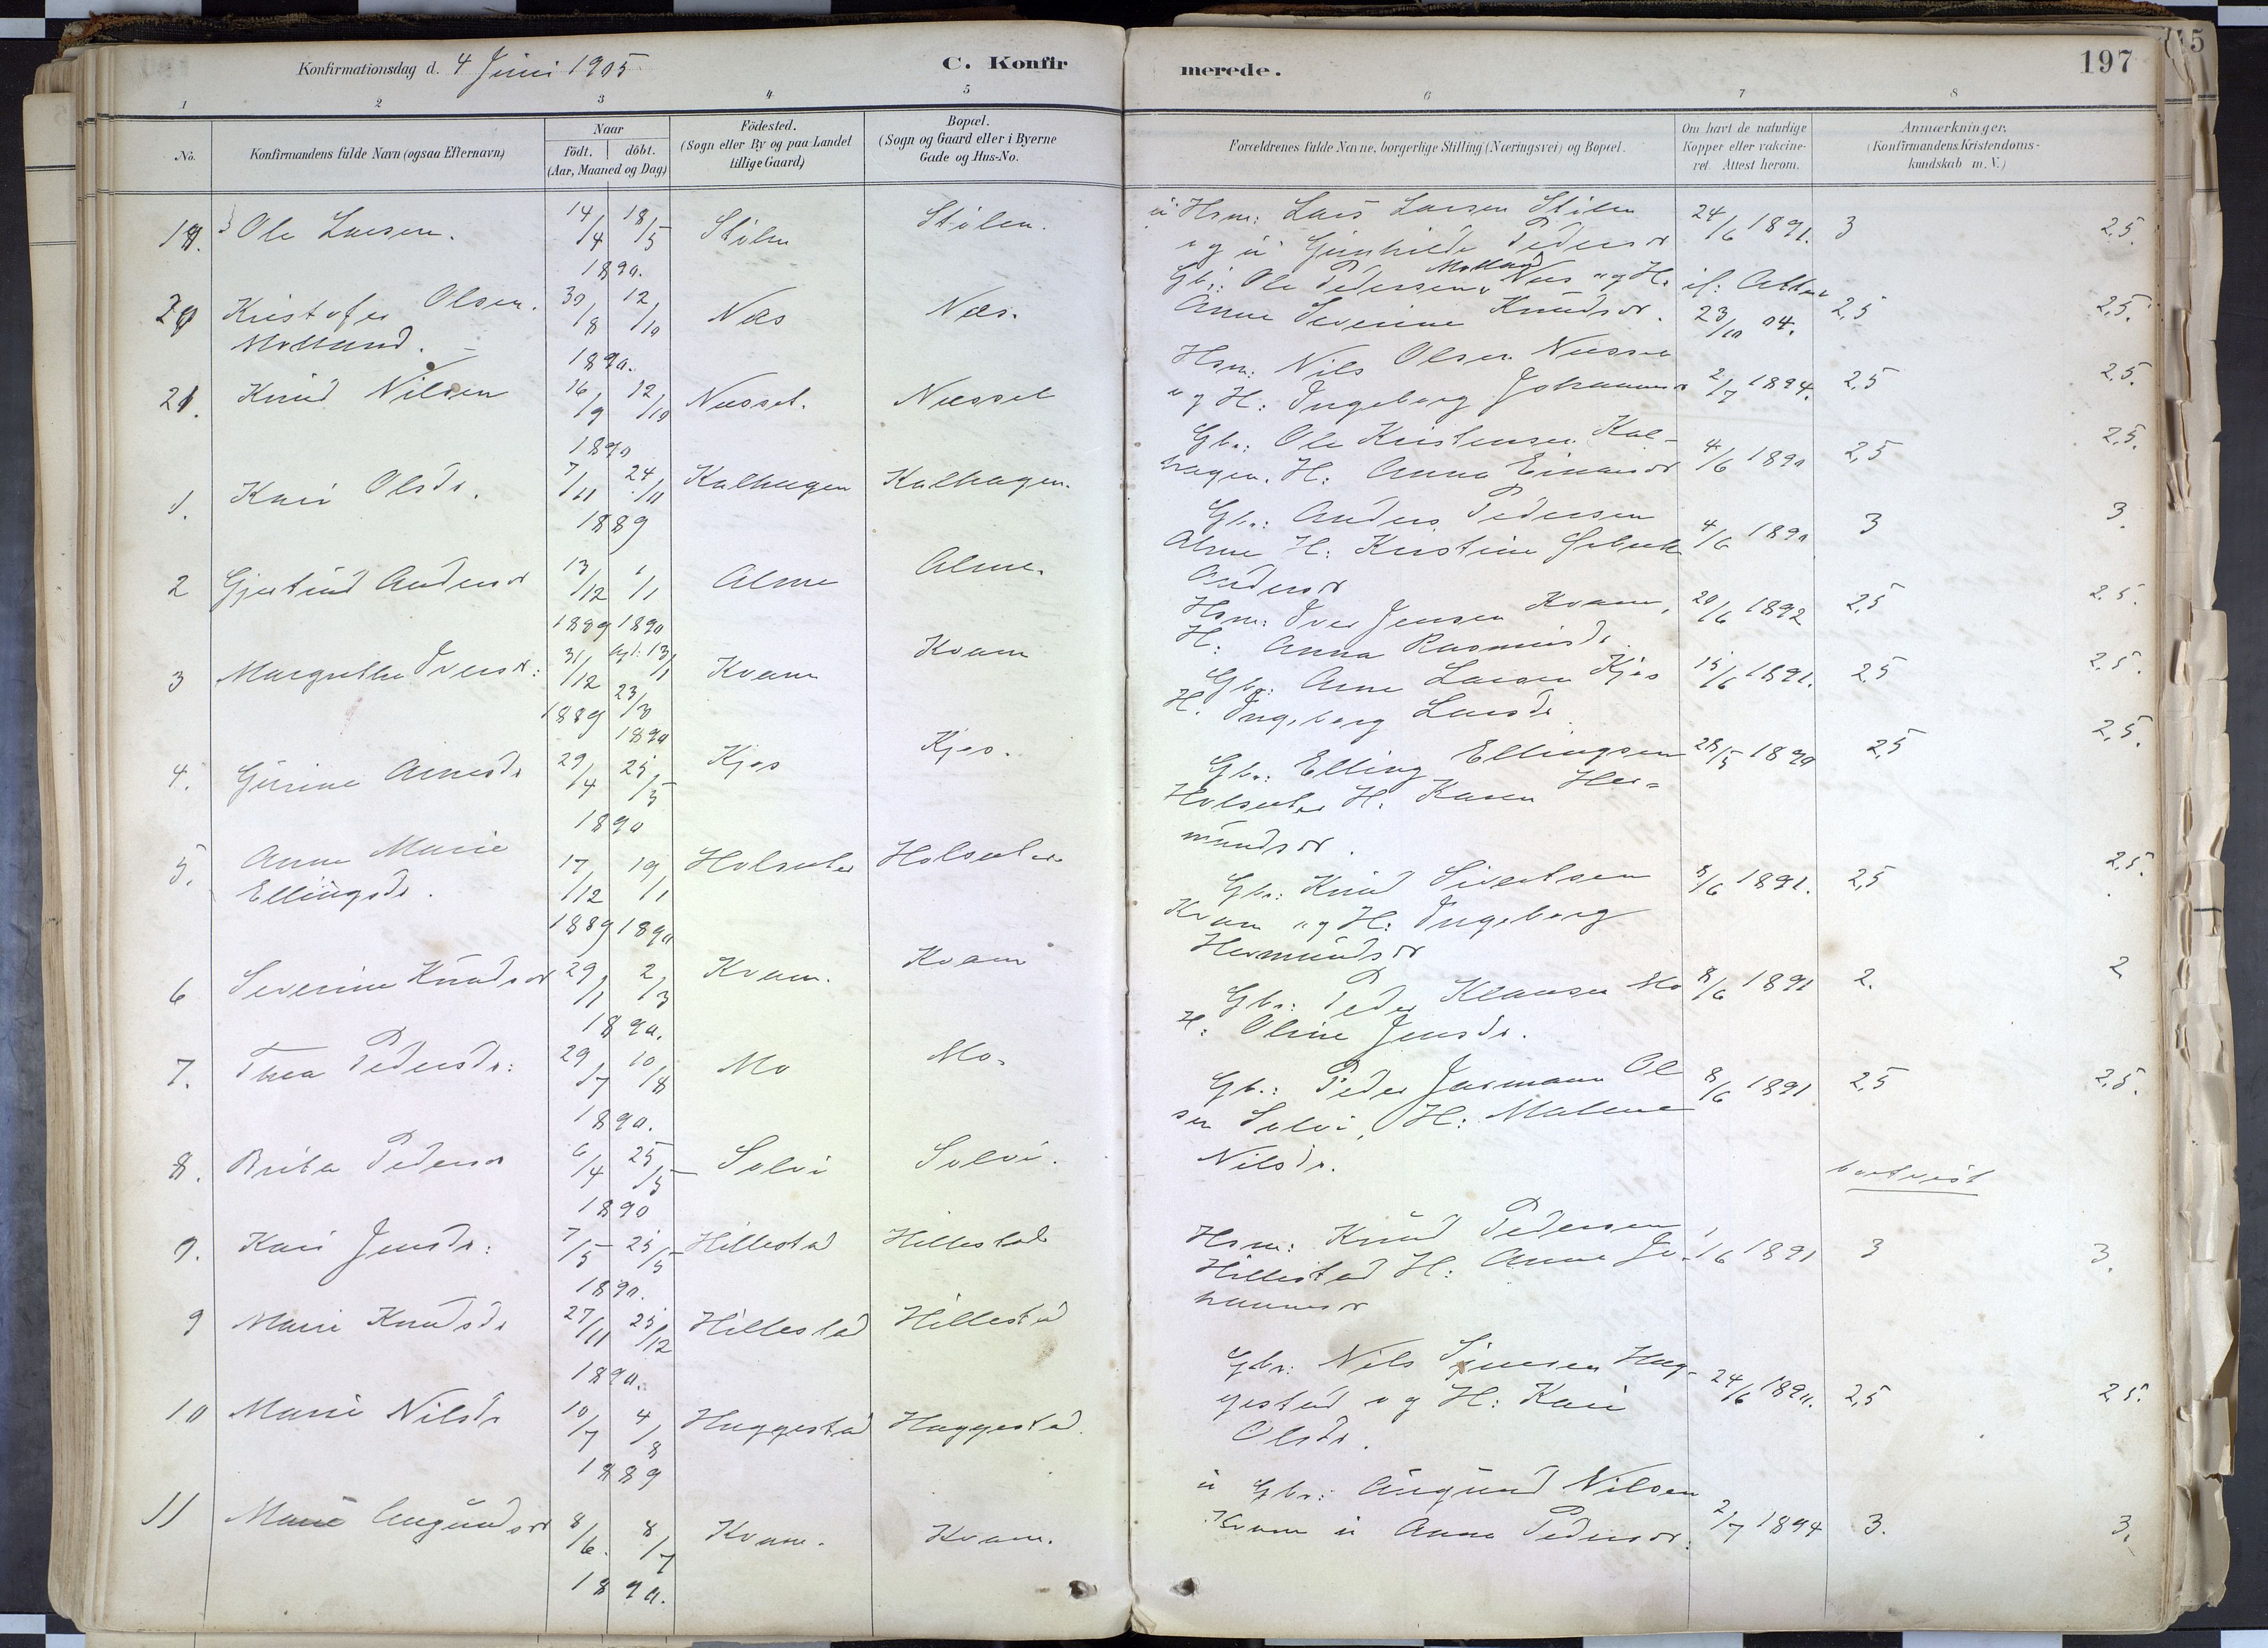 Konfirmationsdag d. 4 Juni 1905
C. Konfir
merede.
197
1 2 3 4 5 6 7 8
No.
Konfirmandens fulde Navn (ogsaa Efternavn)
Naar
Födt. döbt.
(Aar, Maaned og Dag)
Födested.
(Sogn eller By og paa Landet
tillige Gaard)
Bopæl.
(Sogn og Gaard eller i Byerne
Gade og Hus-No.
Forældrenes fulde Navne, borgerlige Stilling (Næringsvei) og Bopæl.
Om havt de naturlige
Kopper eller vakcine-
ret. Attest herom.
Anmærkninger.
(Konfirmandens Kristendoms-
kundskab m. V.)
19. Ole Larsen. 14/4 18/5 1890. Stölen Stölen.
u Hsm: Lars Larsen Stölen
og u Gunhilde Pedersdr 24/6 1891. 3 2,5.
20 Kristofer Olsen. 30/8 12/10 Næs Næs.
Molland. 1890.
Gbr: Ole Pedersen Molland Næs og H. if: Attest
Anne Severine Knudsdr. 23/10 04. 2,5 2,5.
21. Knud Nilsen 16/9 12/10 1890 Næsset. Næsset
Hsm: Nils Olsen Næsset
og H: Ingeborg Johannesdr 2/7 1894. 2,5 2,5.
1. Kari Olsdr. 7/11 24/11 1889 Kalhagen Kalhagen.
Gbr: Ole Kristensen Kal-
hagen. H: Anna Einarsdr 4/6 1890 2,5 2,5.
2 Gjertrud Andersdr 13/12 1/1 1889 1890 Alme Alme.
Gbr: Anders Pedersen
Alme H: Kristine
Andersdr 4/6 1890 3 3.
3 Margrethe Iversdr: 31/12 13/1 23/3 1889 1890 Kvam Kvam
Hsm: Iver Jensen Kvam, 20/6 1892 2,5 2.5.
H: Anna Rasmusdr.
4. Gurine Arnesdr 29/4 25/5 1890 Kjos Kjos.
Gbr: Arne Larsen Kjos 15/6 1891. 2,5 2.5.
H. Ingeborg Larsdr.
5. Anne Marie 17/12 19/1 Holsæter Holsæter
Ellingsdr. 1889 1890
Gbr: Elling Ellingsen 28/5 1890 2,5 2,5.
Holsæter H. Karen Her=
mundsdr.
6 Severine Knudsdr 29/1 2/3 1890. Kvam. Kvam
Gbr: Knud Sivertsen 8/6 1891. 2,5 2,5.
Kvam og H: Ingeborg
Hermundsdr
7. Thea Pedersdr: 29/7 10/8 1890. Mo Mo.
Gbr: Peder Klausen Mo 8/6 1891 2. 2
H: Oline Jensdr.
8. Brita Pedersdr 6/4 25/5 1890 Solvi Solvi.
Gbr.: Peder Jarmann Ol 8/6 1891 2,5 2,5.
sen Solvi, H: Malene
Nilsdr.
9. Kari Jensdr: 7/5 25/5 1890. Hillestad Hillestad
bortreist
9 Marie Knudsdr 27/11 25/12 1890. Hillestad Hillestad
Hsm: Knud Pedersen
Hillestad H: Anne Jo- 1/6 1891 3 3.
hannesdr
10 Marie Nilsdr 10/7 4/8 1889 Haggestad Haggestad.
Gbr: Nils Simensen Hag-
gestad og H: Kari 24/6 1890. 2,5 2,5.
Olsdr.
11 Marie Augundsdr 8/6. 8/7 1890. Kvam. Kvam.
u Gbr: Augund Nilsen
Kvam u Anna Pedersdr. 2/7 1894 3. 3.